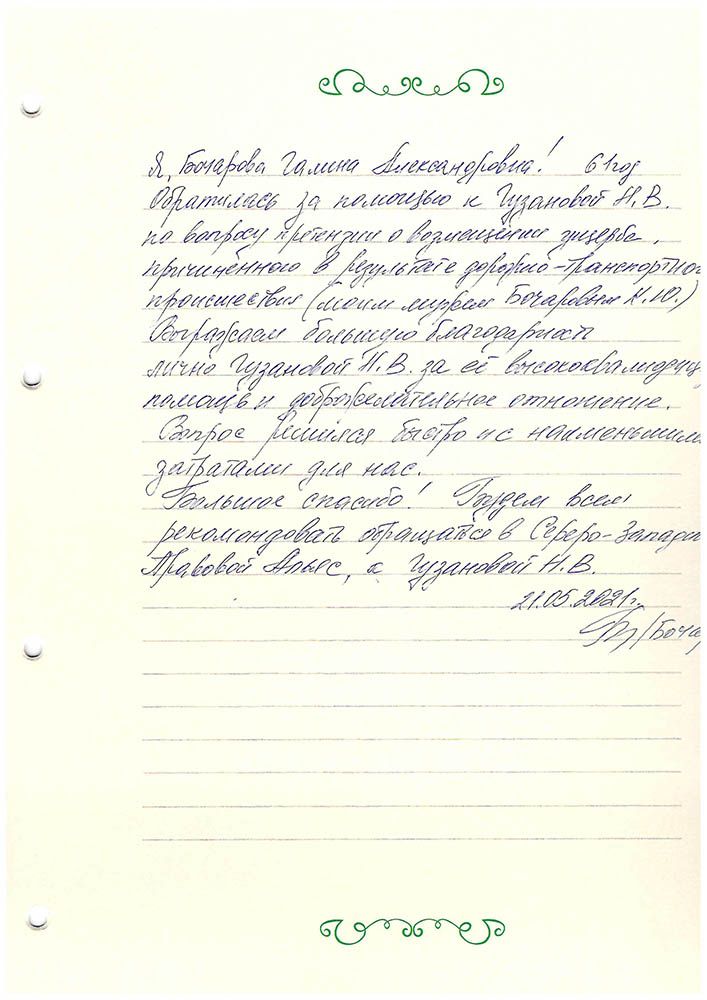 Я, Бочарова Галина Александровна! 61 год
Обратилась за помощью к Гузановой Н.В.
по вопросу претензии о возмещении ущерба,
причинённого в результате дорожно-транспортног
происшествия (моим мужем Бочаровым Н.Ю.)
Выражаем большую благодарность
лично Гузановой Н.В. за её высококвалифиц
помощь и доброжелательное отношение.
Вопрос решился быстро и с наименьшими
затратами для нас.
Большое спасибо! Будем всем
рекомондовать обращатся в Северо-Запад
Правовой Альяс, к Гузановой Н.В.
21.05.2021г.
/Боча